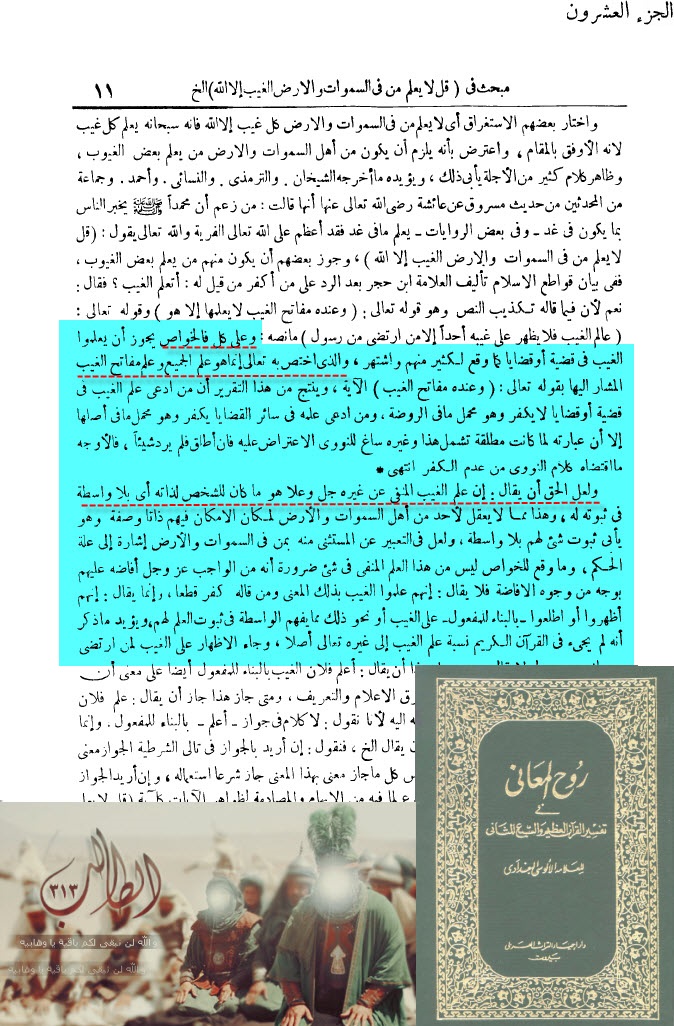 الجزء العشرون
مبحث فى ( قل لا يعلم من فى السموات والارض الغيب إلا الله) الخ
١١
واختار بعضهم الاستغراق أى لا يعلم من فى السموات والارض كل غيب إلا الله فانه سبحانه يعلم كل غيب
لانه الأوفق بالمقام ، واعترض بأنه يلزم أن يكون من أهل السموات والارض من يعلم بعض الغيوب ،
وظاهر كلام كثير من الأجلة يأبى ذلك ، ويؤيده ما أخرجه الشيخان . والترمذى . والنسائى . وأحمد . وجماعة
من المحدثين من حديث مسروق عن عائشة رضى الله تعالى عنها أنها قالت : من زعم أن محمداً ﷺ يخبر الناس
بما يكون فى غد ـ وفى بعض الروايات ـ يعلم مافى غد فقد أعظم على الله تعالى الفرية والله تعالى يقول : (قل
لا يعلم من فى السموات والارض الغيب إلا الله ) ، وجوز بعضهم أن يكون منهم من يعلم بعض الغيوب ،
ففى بيان قواطع الاسلام تأليف العلامة ابن حجر بعد الرد على من أكفر من قيل له : أتعلم الغيب ؟ فقال :
نعم لأن فيما قاله تكذيب النص وهو قوله تعالى : ( وعنده مفاتح الغيب لا يعلمها إلا هو ) وقوله تعالى :
( عالم الغيب فلا يظهر على غيبه أحداً إلا من ارتضى من رسول ) مانصه : وعلى كل فالخواص يجوز أن يعلموا
الغيب فى قضية أو قضايا كما وقع لكثير منهم واشتهر ، والذى اختص به تعالى إنما هو علم الجميع وعلم مفاتح الغيب
المشار اليها بقوله تعالى : ( وعنده مفاتح الغيب ) الآية ، وينتج من هذا التقرير أن من ادعى علم الغيب فى
قضية أو قضايا لا يكفر وهو محمل مافى الروضة ، ومن ادعى علمه فى سائر القضايا يكفر وهو محمل مافى أصلها
إلا أن عبارته لما كانت مطلقة تشمل هذا وغيره ساغ للنووى الاعتراض عليه فان أطلق فلم يرد شيئاً ، فالأوجه
ما اقتضاه كلام النووى من عدم الكفر انتهى *
ولعل الحق أن يقال : إن علم الغيب المنفى عن غيره جل وعلا هو ما كان للشخص لذاته أى بلا واسطة
فى ثبوته له ، وهذا مما لا يعقل لأحد من أهل السموات والأرض لمكان الامكان فيهم ذاتا وصفة وهو
يأبى ثبوت شئ لهم بلا واسطة ، ولعل فى التعبير عن المستثنى منه بمن فى السموات والأرض إشارة إلى علة
الحكم ، وما وقع للخواص ليس من هذا العلم المنفى فى شئ ضرورة أنه من الواجب عز وجل أفاضه عليهم
بوجه من وجوه الافاضة فلا يقال : إنهم علموا الغيب بذلك المعنى ومن قاله كفر قطعا ، وإنما يقال : إنهم
أظهروا أو اطلعوا ـ بالبناء للمفعول ـ على الغيب أو نحو ذلك مما يفهم الواسطة فى ثبوت العلم لهم ، ويؤيد ما ذكر
أنه لم يجىء فى القرآن الكريم نسبة علم الغيب إلى غيره تعالى أصلا ، وجاء الاظهار على الغيب لمن ارتضى
أن يقال : أعلم فلان الغيب بالبناء للمفعول أيضا على معنى أن
ق الاعلام والتعريف ، ومتى جاز هذا جاز أن يقال : علم فلان
اليه لأنا نقول : لا كلام فى جواز ـ أعلم ـ بالبناء للمفعول . وإنما
يقال الخ ، فنقول : إن أريد بالجواز فى تالى الشرطية الجواز معنى
كل ماجاز معنى بهذا المعنى جاز شرعا استعماله ، وإن أريد الجواز
لما فيه من الايهام والمصادمة لظواهر الآيات كآية ( قل لا يعلم
روح المعانى
فى
تفسير القرآن العظيم والسبع المثانى
للعلامة الألوسى البغدادى
دار إحياء التراث العربى
بيروت
الطالب
٣١٣
والله لن تبقى لكم باقية يا وهابيه
والله لن تبقى لكم باقية يا وهابيه